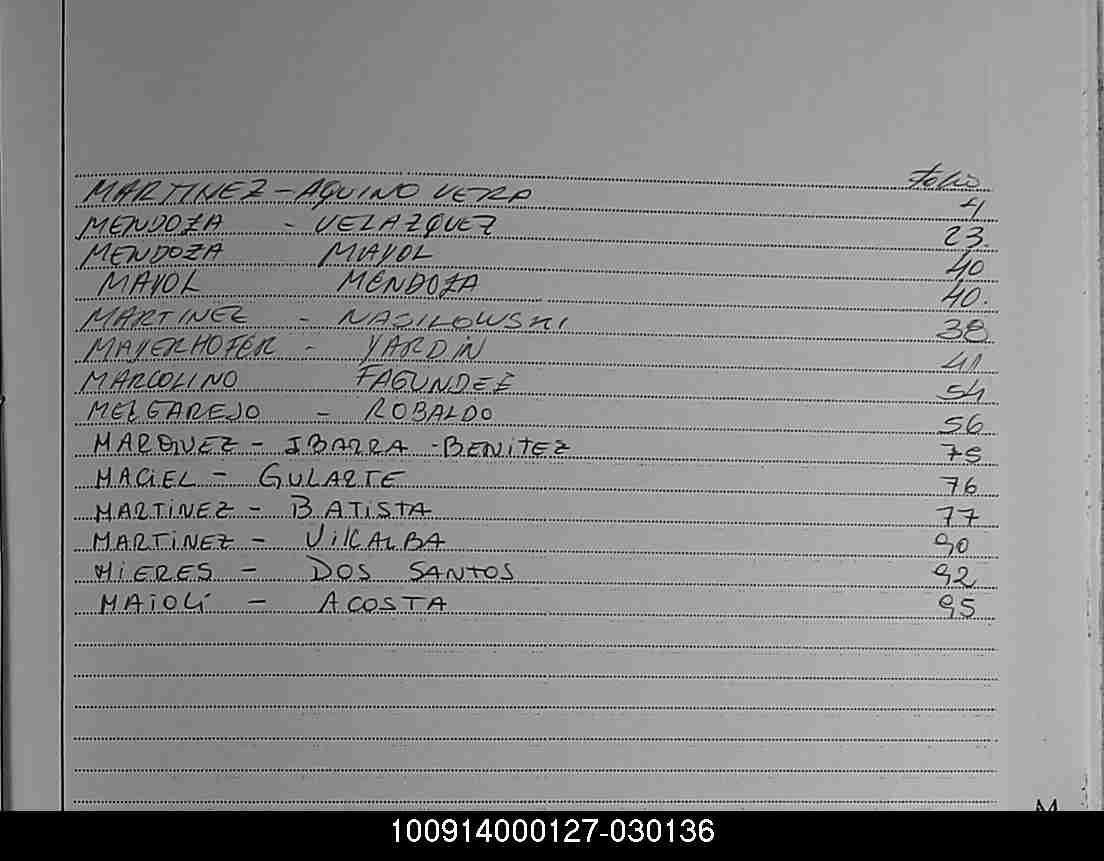 folio
MARTINEZ - AQUINO VERA 4
MENDOZA - VELAZQUEZ 23.
MENDOZA MAYOL 40
MAYOL MENDOZA 40.
MARTINEZ - NASILOWSKI 38
MAYERHOFER - YARDIN 41
MARCOLINO FAGUNDEZ 54
MELGAREJO - ROBALDO 56
MARQUEZ - IBARRA - BENITEZ 75
MACIEL - GULARTE 76
MARTINEZ - BATISTA 77
MARTINEZ - VILLALBA 90
MIERES - DOS SANTOS 92
MAIOLI - ACOSTA 95
M
100914000127-030136